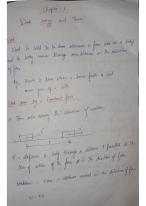 Chapter - 1
Work, energy and Power
Work
Work is said to be done whenever a force acts on a body
and the body moves through some distance in the direction
of force.
Eg. Work is done when a horse pulls a cart
Work done by a Constant force
① Force acts along the direction of motion
F = displaces a body through a distance S parallel to the
line of action of the force in the direction of force.
Workdone = Force × distance moved in the direction of force
W = FS